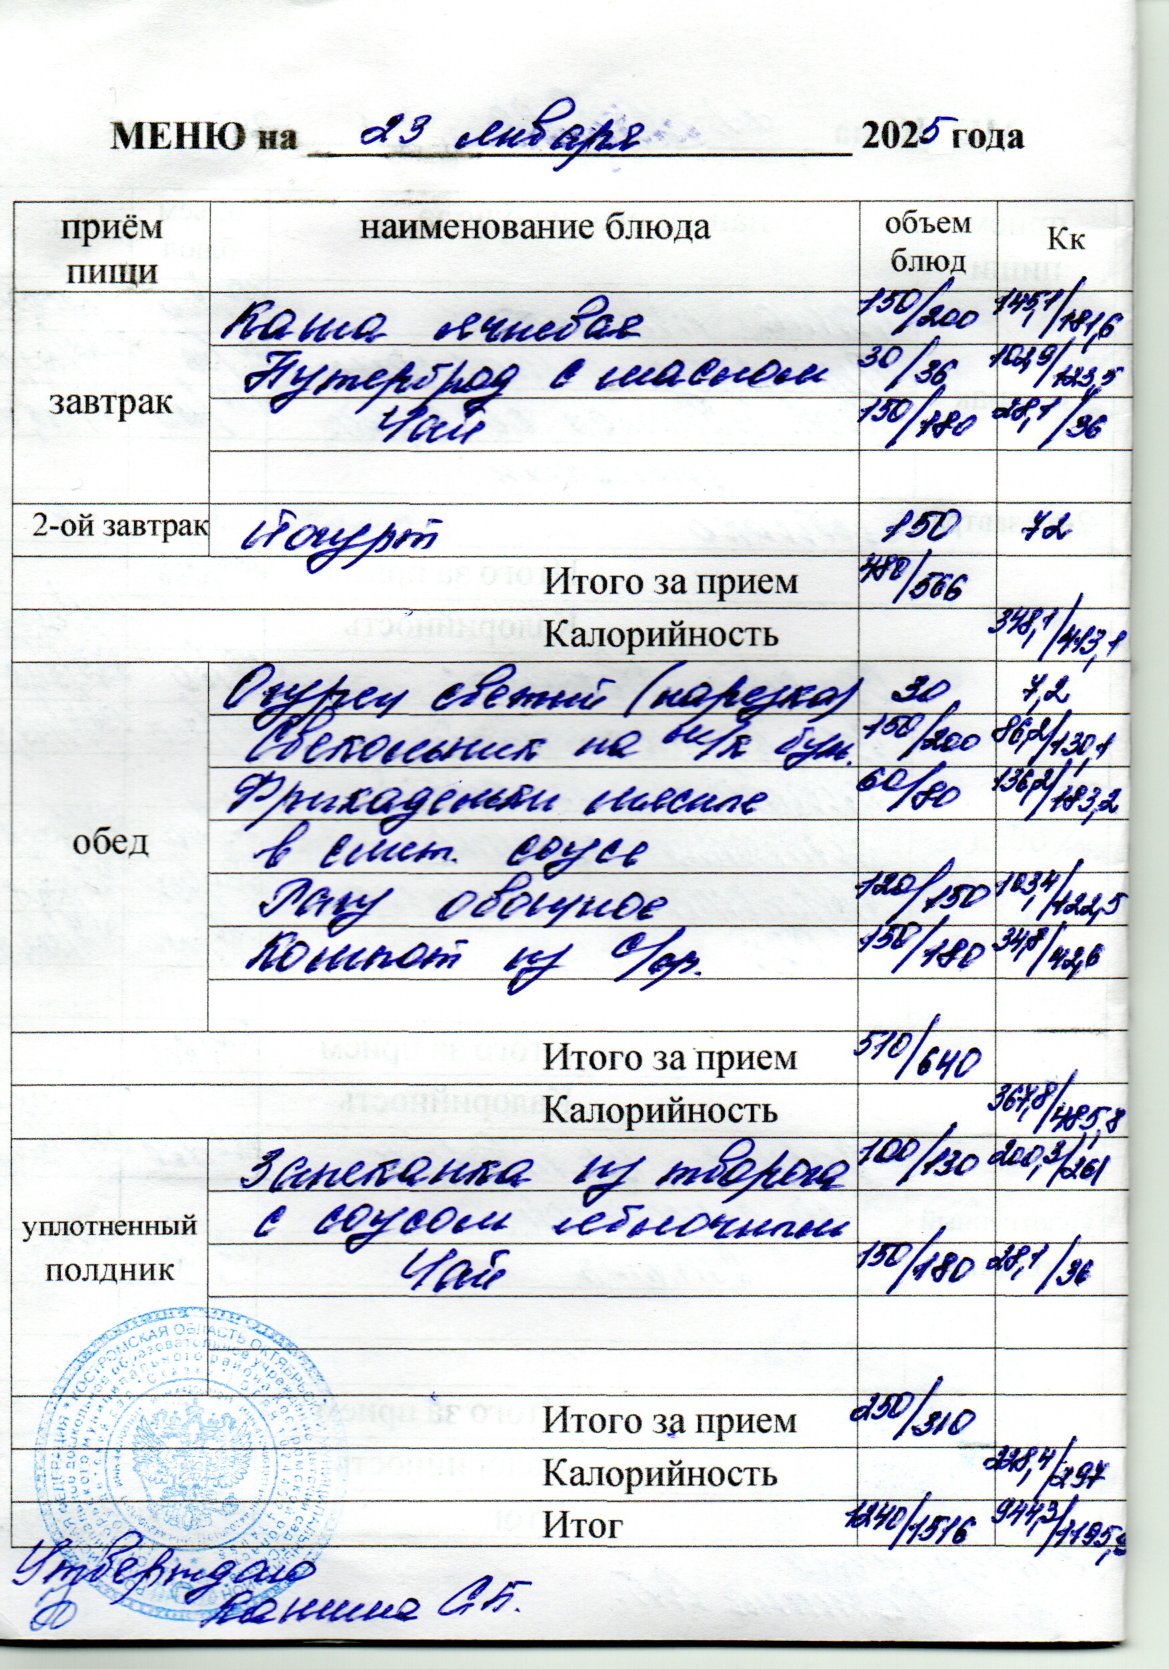 МЕНЮ на 23 января 2025 года
приём пищи наименование блюда объем блюд Кк
завтрак
Каша ячневая 150/200 145,1/181,6
Бутерброд с маслом 30/36 102,9/123,5
Чай 150/180 28,1/36
2-ой завтрак Йогурт 150 72
Итого за прием 480/566
Калорийность 348,1/413,1
обед
Огурец свежий (нарезка) 30 7,2
Свекольник на м/к бул. 150/200 86,2/130,1
Фрикадельки мясные 60/80 136,2/183,2
в смет. соусе
Рагу овощное 120/150 103,4/122,5
Компот из с/фр. 150/180 34,8/42,6
Итого за прием 510/640
Калорийность 367,8/485,8
уплотненный полдник
Запеканка из творога 100/130 200,3/261
с соусом яблочным
Чай 150/180 28,1/36
Итого за прием 250/310
Калорийность 228,4/297
Итог 1240/1516 944,3/1195,9
Утверждаю
Канина С.Б.